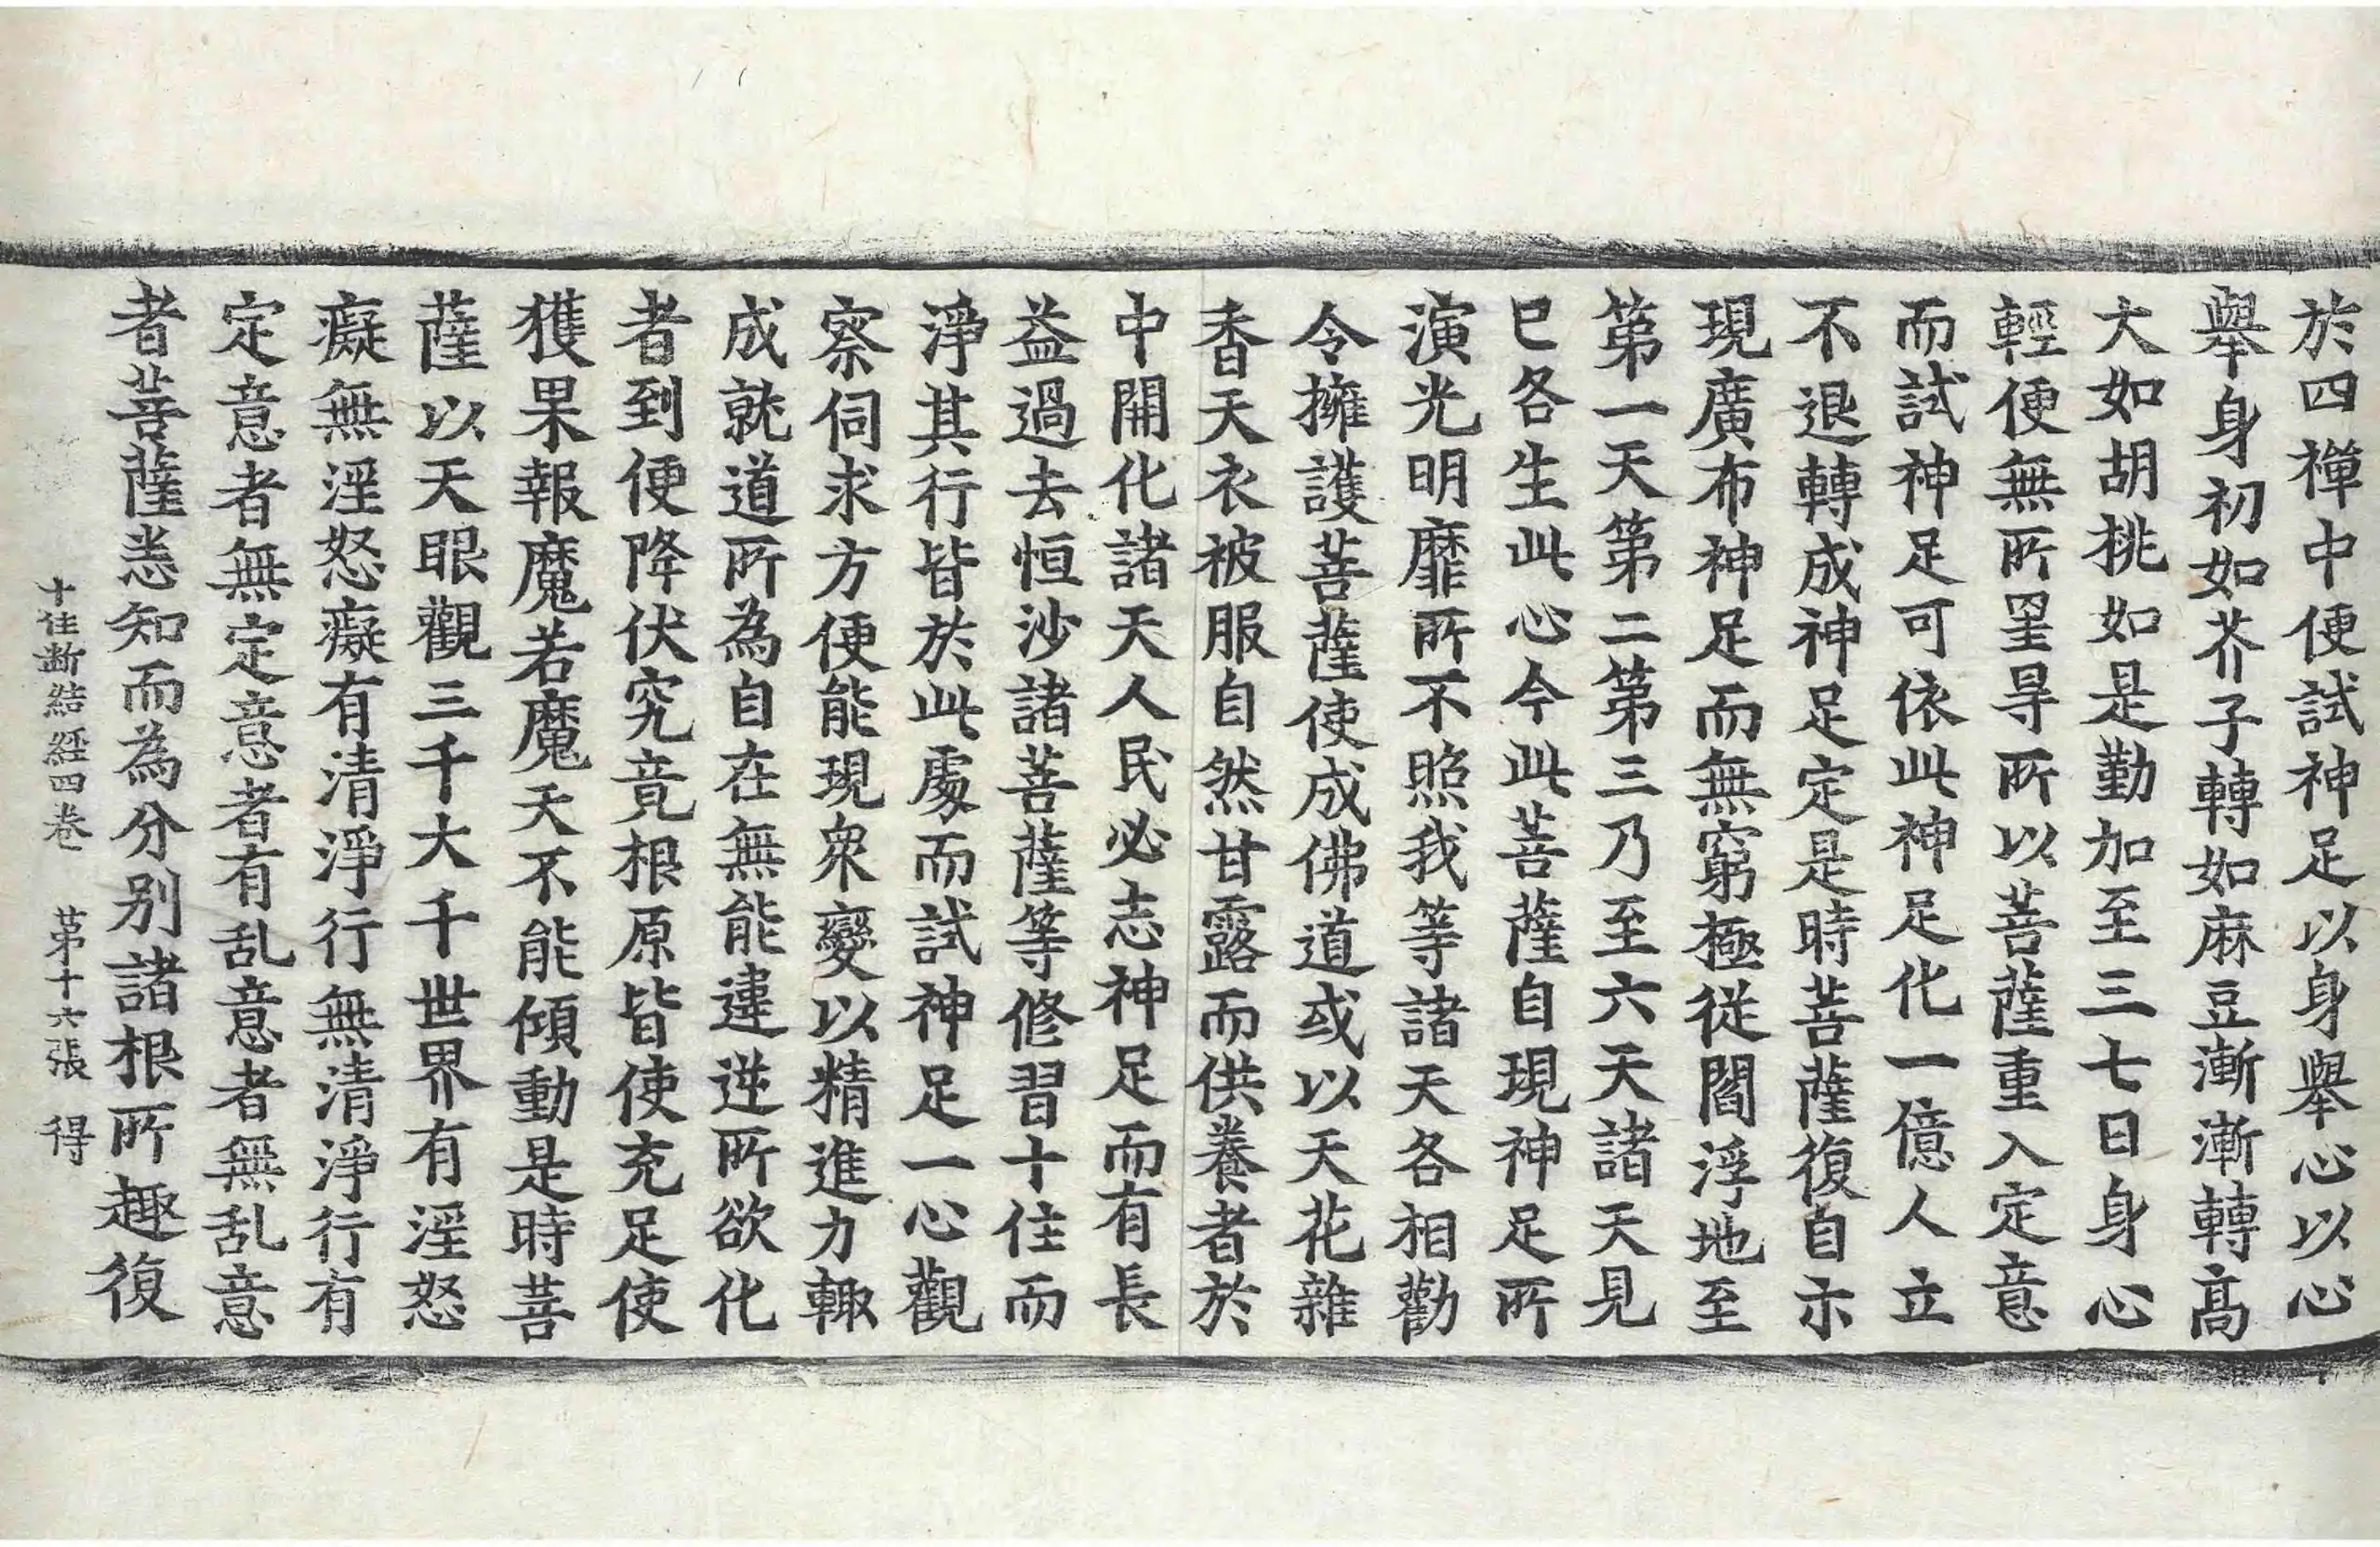 於四禪中便試神足以身舉心以心
舉身初如芥子轉如麻豆漸漸轉高
大如胡桃如是勤加至三七日身心
輕便無所罣㝵所以菩薩重入定意
而試神足可依此神足化一億人立
不退轉成神足定是時菩薩復自示
現廣布神足而無窮極從閻浮地至
第一天第二第三乃至六天諸天見
已各生此心今此菩薩自現神足所
演光明靡所不照我等諸天各相勸
令擁護菩薩使成佛道或以天花雜
香天衣被服自然甘露而供養者於
中開化諸天人民必志神足而有長
益過去恒沙諸菩薩等修習十住而
淨其行皆於此處而試神足一心觀
察伺求方便能現眾變以精進力輙
成就道所為自在無能違逆所欲化
者到便降伏究竟根原皆使充足使
獲果報魔若魔天不能傾動是時菩
薩以天眼觀三千大千世界有淫怒
癡無淫怒癡有清淨行無清淨行有
定意者無定意者有乱意者無乱意
者菩薩悉知而為分別諸根所趣復
十住断結經四卷　第十六張　得